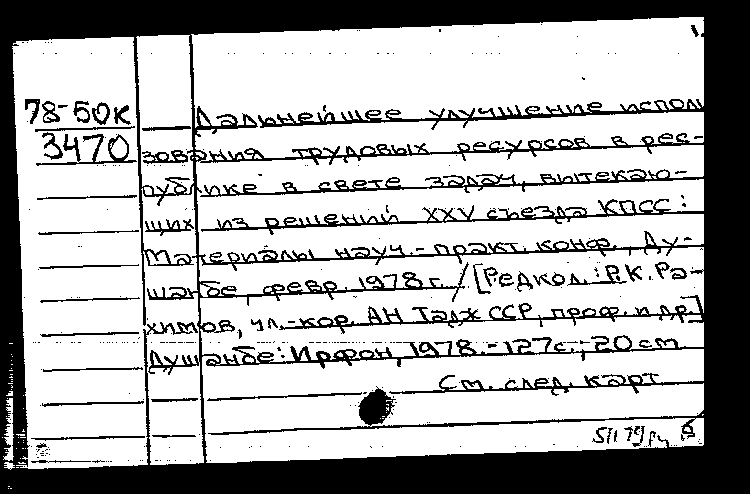 1.
78-50к Дальнейшее улучшение исполь
3470 зования трудовых ресурсов в рес-
публике в свете задач, вытекаю-
щих из решений XXV съезда КПСС:
Материалы науч.-практ. конф., Ду-
шанбе, февр. 1978 г. / [Редкол.: Р.К. Ра-
химов, чл.-кор. АН Тадж ССР, проф. и др.]
Душанбе: Ирфон, 1978. - 127 с.; 20 см
См. след. карт